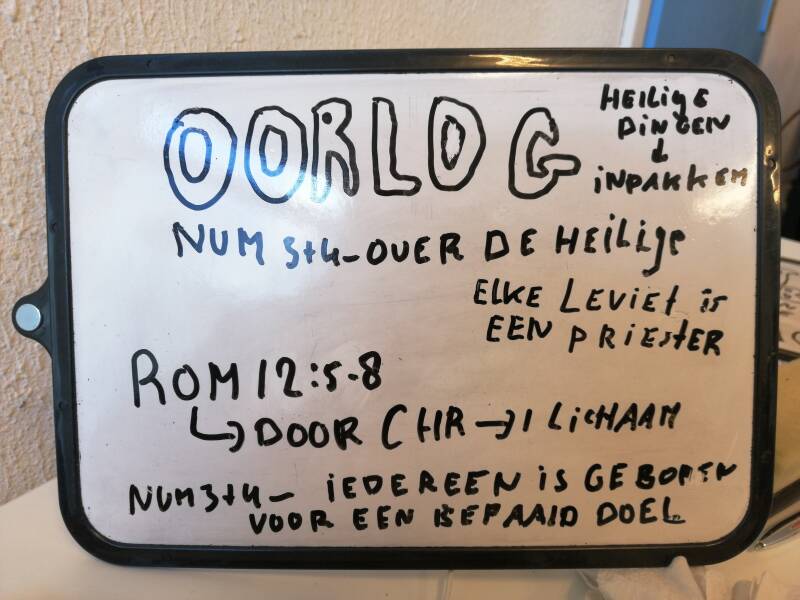 OORLOG
HEILIGE
DINGEN
↓
INPAKKEN
NUM 3+4 - OVER DE HEILIGE
ELKE LEVIET is
EEN PRIESTER
ROM 12:5-8
↳ DOOR CHR → 1 LICHAAM
NUM 3+4 - IEDEREEN IS GEBOREN
VOOR EEN BEPAALD DOEL